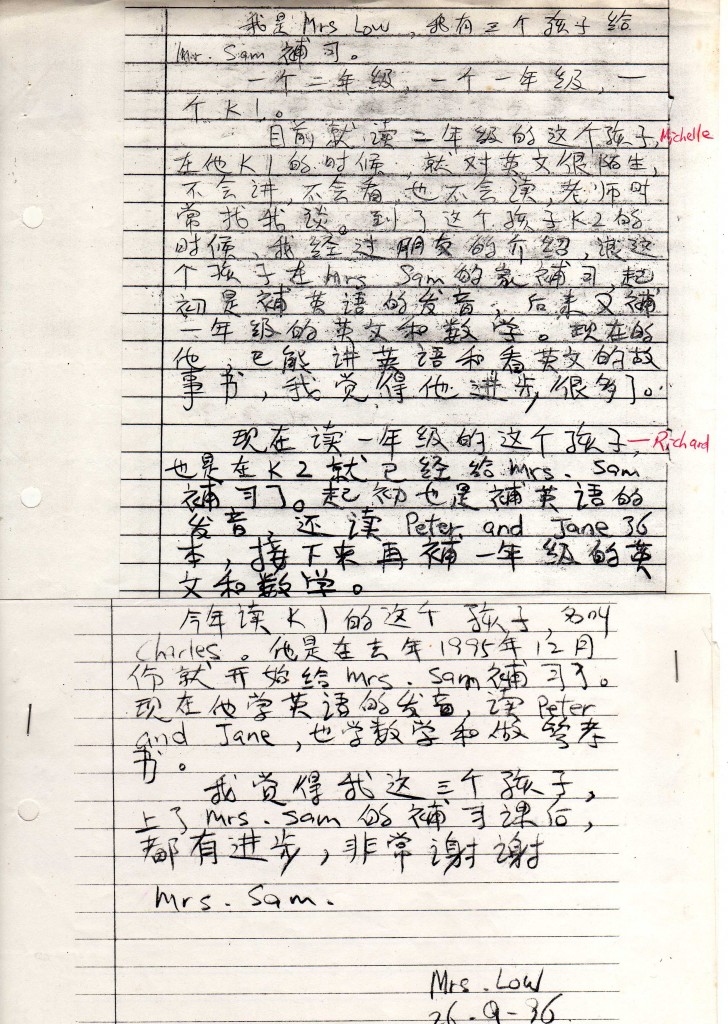 我是 Mrs Low, 我有三个孩子给
Mr. Sam 補习。
一个二年级, 一个一年级, 一
个 K1。
目前就读二年级的这个孩子, Michelle
在他K1的时候, 就对英文很陌生,
不会讲, 不会看, 也不会读, 老师时
常找我谈。到了这个孩子K2的
时候, 我经过朋友的介绍, 让这
个孩子在 Mrs Sam 的家補习, 起
初是補英语的发音, 后来又補
一年级的英文和数学。现在的
他, 已能讲英语和看英文的故
事书, 我觉得他进步很多了。
现在读一年级的这个孩子, — Richard
也是在K2就已经给 Mrs. Sam
補习了。起初也是補英语的
发音, 还读 Peter and Jane 36
本, 接下来再補一年级的英
文和数学。
今年读K1的这个孩子, 名叫
Charles。他是在去年1995年12月
份就开始给 Mrs. Sam 補习了。
现在他学英语的发音, 读 Peter
and Jane, 也学数学和做参考
书。
我觉得我这三个孩子,
上了 Mrs. Sam 的補习课后,
都有进步, 非常谢谢
Mrs. Sam.
Mrs. Low
26-9-96